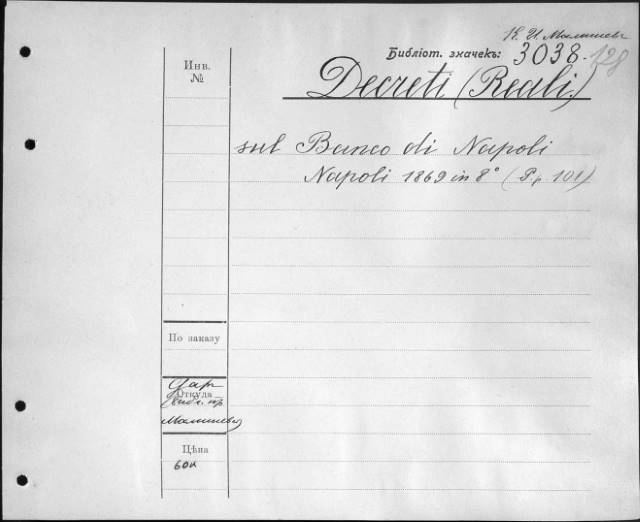 К. И. Малышев
Библіот. значекъ: 3038. 128
Инв.
№
Decreti (Reali.)
sul Banco di Napoli
Napoli 1869 in 8° (Pp 101)
По заказу
Откуда
Даръ
библ. пр
Малышева
Цѣна
60к